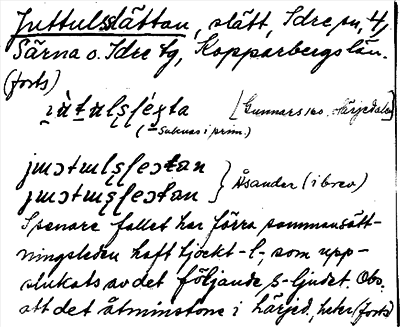 Juttulsslättan, slätt, Idre sn, 4,
Särna o. Idre tg, Kopparbergs län.
(forts)
[Gunnarsson, Härjedalen]
(= Saknas i prim.)
} Åsander (i brev)
I senare fallet har förra sammansätt-
ningsleden haft tjockt -l-, som upp-
slukats av det följande s-ljudet. Obs.
att det åtminstone i Härjed. heter (forts)